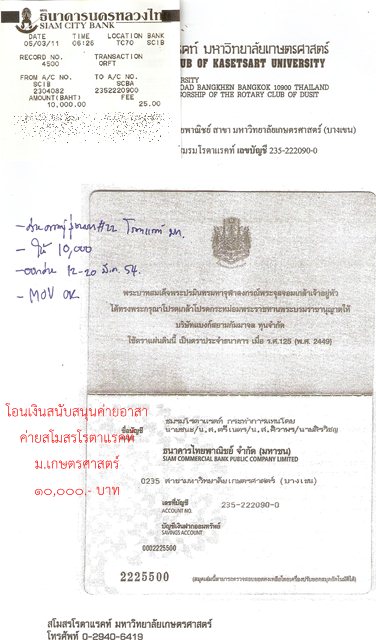 ธนาคารนครหลวงไทย
SIAM CITY BANK
DATE TIME LOCATION BANK
05/03/11 06:26 TC70 SCIB
RECORD NO. TRANSACTION
4500 ORFT
FROM A/C NO. TO A/C NO.
SCIB SCBA
2304082 2352220900
AMOUNT(BAHT) FEE
10,000.00 25.00
แรคท์ มหาวิทยาลัยเกษตรศาสตร์
UB OF KASETSART UNIVERSITY
ERSITY
OAD BANGKHEN BANGKOK 10900 THAILAND
ORSHIP OF THE ROTARY CLUB OF DUSIT
ยพาณิชย์ สาขา มหาวิทยาลัยเกษตรศาสตร์ (บางเขน)
โมสรโรตาแรคท์ เลขบัญชี 235-222090-0
โรตาแรคท์ มก.
- ให้ 10,000
12-20 มี.ค. 54.
- MOV OK
พระบาทสมเด็จพระปรมินทรมหาจุฬาลงกรณ์พระจุลจอมเกล้าเจ้าอยู่หัว
ได้ทรงพระกรุณาโปรดเกล้าโปรดกระหม่อมพระราชทานพระบรมราชานุญาตให้
บริษัทแบงก์สยามกัมมาจล ทุนจำกัด
ใช้ตราแผ่นดินนี้ เป็นตราประจำธนาคาร เมื่อ ร.ศ.125 (พ.ศ. 2449)
โอนเงินสนับสนุนค่ายอาสา
ค่ายสโมสรโรตาแรคท์
ม.เกษตรศาสตร์
๑๐,๐๐๐.- บาท
ชื่อบัญชี ชมรมโรตาแรคท์ กระทำการแทนโดย
ธนาคารไทยพาณิชย์ จำกัด (มหาชน)
SIAM COMMERCIAL BANK PUBLIC COMPANY LIMITED
0235 สาขามหาวิทยาลัยเกษตรศาสตร์ (บางเขน)
เลขที่บัญชี 235-222090-0
ACCOUNT NO.
บัญชีเงินฝากออมทรัพย์
SAVINGS ACCOUNT
0002225500
2225500
สโมสรโรตาแรคท์ มหาวิทยาลัยเกษตรศาสตร์
โทรศัพท์ 0-2940-6419